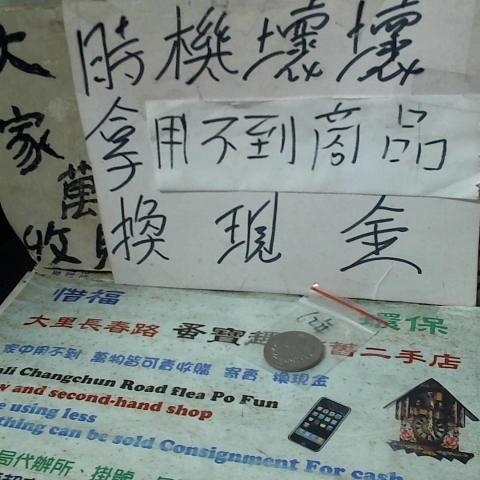 大
家
萬
收
時機壞壞
拿用不到商品
換現金
惜福
環保
大里長春路 蚤寶
舊二手店
家中用不到 萬物皆可寄收購 寄賣 換現金
ali Changchun Road flea Po Fun
w and second-hand shop
e using less
thing can be sold Consignment For cash
局代辦所、掛號